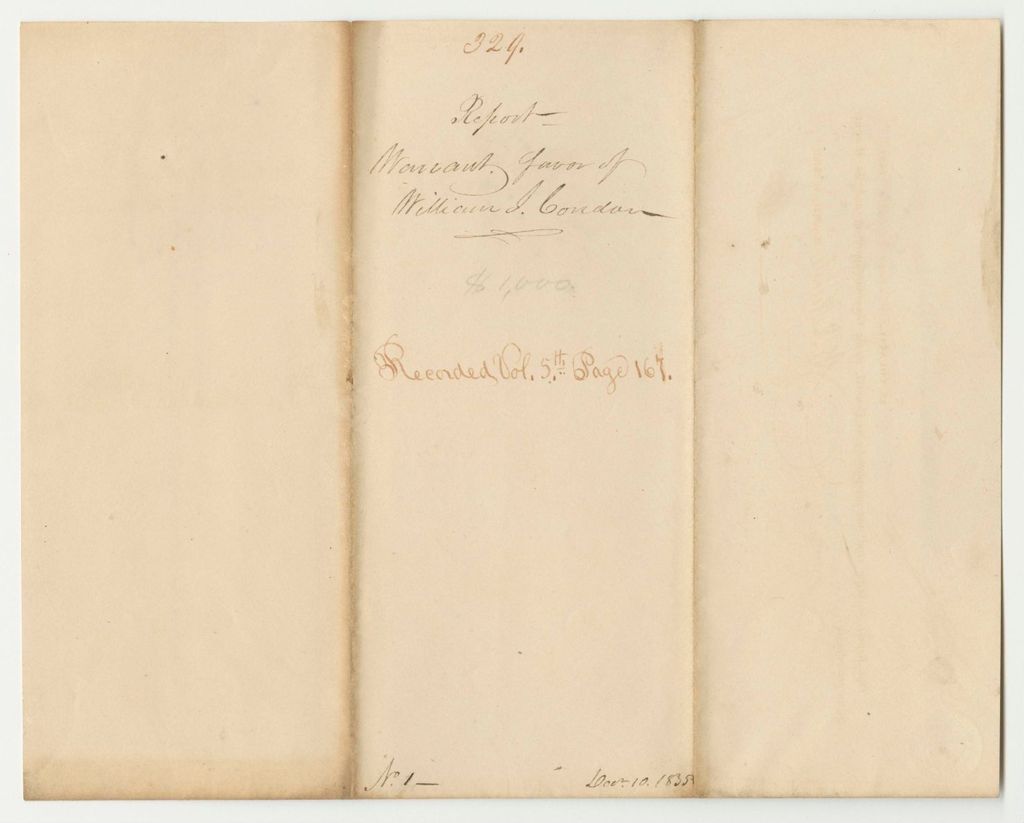 329.
Report—
Warrant favor of
William J. Condon
$1,000
Recorded, Vol. 5.th Page 167.
No. 1— Decr. 10. 1838